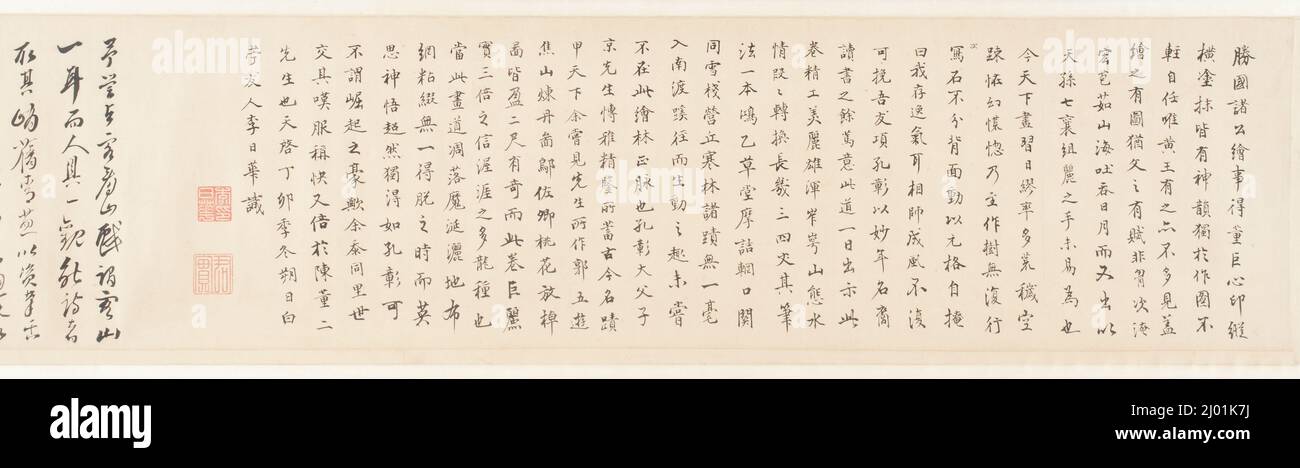 勝國諸公繪事得董巨心印縱
橫塗抹皆有神韻獨於作圖不
輕自任唯黃王有之六不多見蓋
繪之有圖猶文之有賦非胷次淹
宏苞茹山海吐吞日月而又出以
天孫七襄組麗之手未易為也
今天下畫習日繆率多荒穢空
疎怪幻慌惚乃至作樹無復行
寫石不分背面動以元格自掩
曰我存逸氣耳相師成風不復
可挽吾友項孔彰以妙年名裔
讀書之餘篤意此道一日出示此
卷精工美麗雄渾崒崿山態水
情段〻轉換長幾三四丈其筆
法一本鴻乙草堂摩詰輞口關
同雪棧營丘寒林諸蹟無一毫
入南渡蹊徑而生動之趣未嘗
不在此繪林正脉也孔彰大父子
京先生博雅精鑒所蓄古今名蹟
甲天下余嘗見先生所作郭五遊
焦山煉丹啚鄔佐卿桃花放棹
啚皆盈二尺有奇而此卷巨麗
實三倍之信渥洼之多龍種也
當此畫道凋落魔涎灑地布
網粘綴無一得脱之時而英
思神悟超然獨得如孔彰可
不謂崛起之豪歟余忝同里世
交具嘆服稱快又倍於陳董二
先生也天啓丁卯季冬朔日白
苧友人李日華識
一耳而人具一
alamy
Image ID: 2JQ1K7J
www.alamy.com